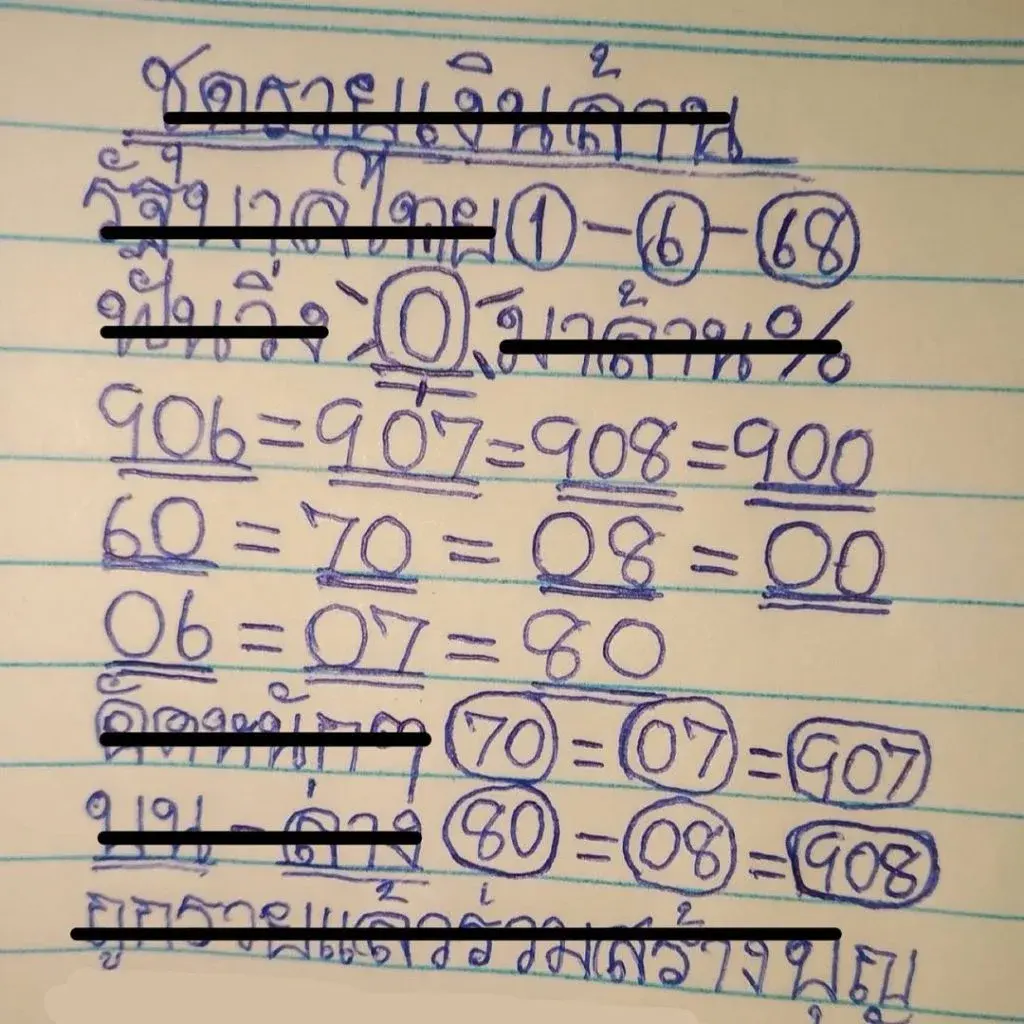 ชุดรวยเงินล้าน
รัฐบาลไทย 1-6-68
ฟันวิ่ง 0 มาล้าน%
906=907=908=900
60=70=08=00
06=07=80
จัดหนักๆ 70=07=907
บน-ล่าง 80=08=908
ถูกรวยแล้วร่วมสร้างบุญ